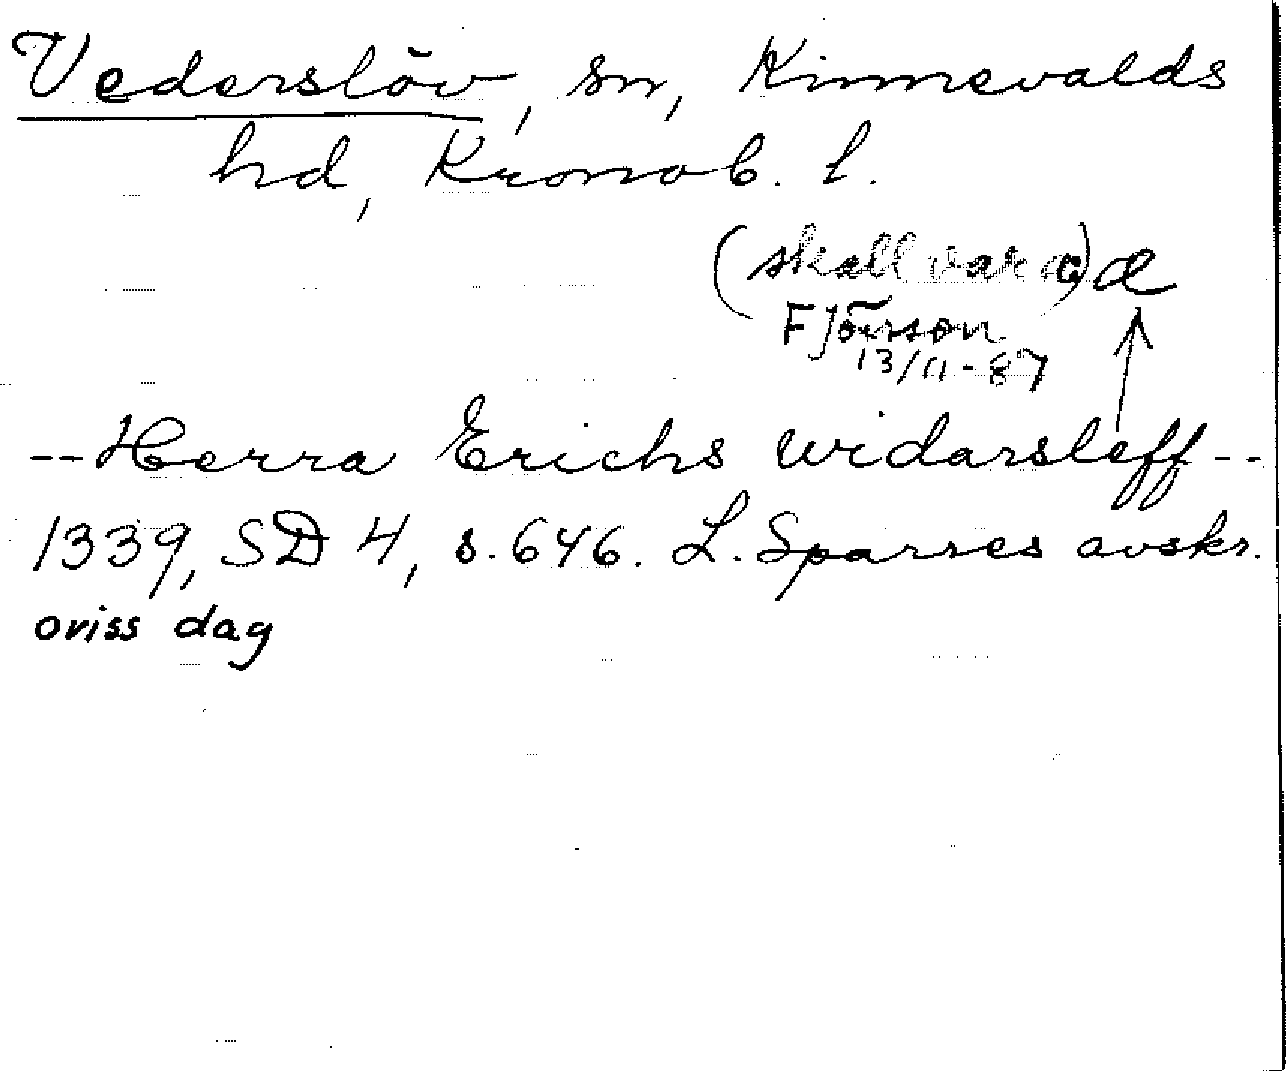 Vederslöv, sn, Kinnevalds
hd, Kronob. l.
(skall vara) æ
13/11-87
-- Herra Erichs widarsleff --
1339, SD 4, s. 646. L. Sparres avskr.
oviss dag